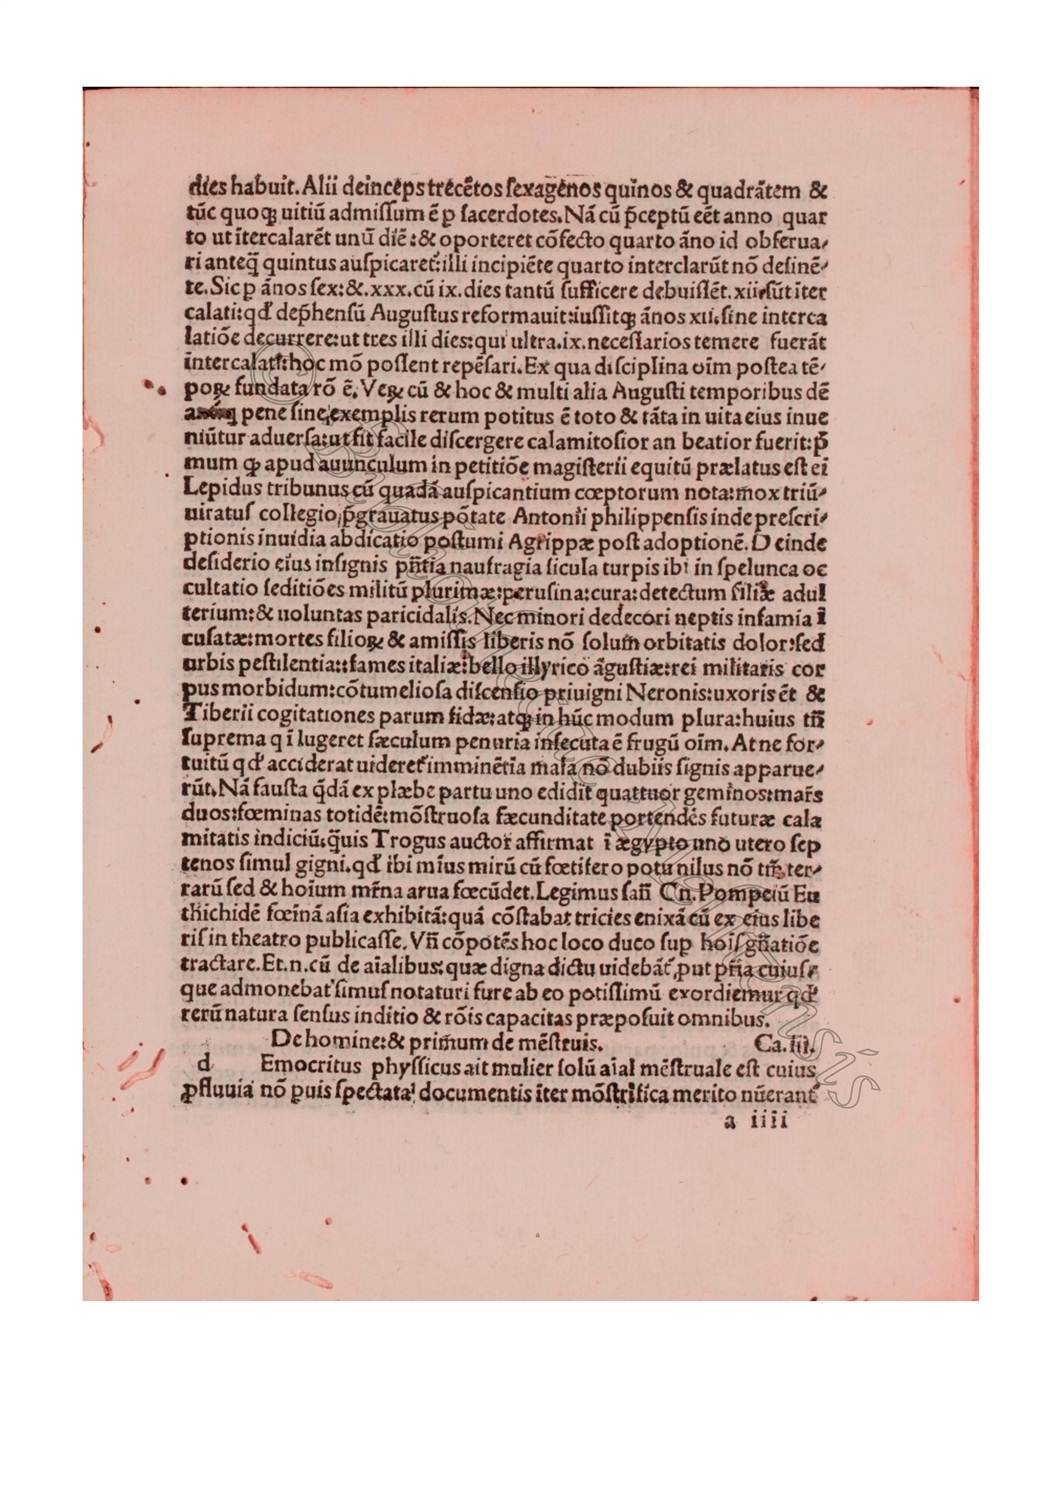 dies habuit. Alii deinceps trecẽtos ſexagẽnos quinos & quadrãtem &
tũc quoqꝫ uitiũ admiſſum ẽ ꝑ ſacerdotes. Nã cũ p̃ceptũ eẽt anno quar
to ut ĩtercalarẽt unũ diẽ: & oporteret cõfecto quarto ãno id obſerua⸗
ri anteq̃ quintus auſpicaret᷑: illi incipiẽte quarto interclarũt nõ deſinẽ⸗
te. Sic ꝑ ãnos ſex: &. xxx. cũ ix. dies tantũ ſufficere debuiſſẽt. xii. ſũt ĩter
calati: qd̕ dep̃henſũ Auguſtus reformauit: iuſſitqꝫ ãnos xii. ſine interca
latiõe decurrere: ut tres illi dies: qui ultra. ix. neceſſarios temere fuerãt
intercalati: hoc mõ poſſent repẽſari. Ex qua diſciplina oim̃ poſtea tẽ⸗
poꝝ fundata rõ ẽ. Veꝝ cũ & hoc & multi alia Auguſti temporibus dẽ
pene ſine exemplis rerum potitus ẽ toto & tãta in uita eius inue
niũtur aduerſa: ut ſit facile diſcergere calamitoſior an beatior fuerit: p̃
mum qꝫ apud auunculum in petitiõe magiſterii equitũ prælatus eſt ei
Lepidus tribunus cũ quadã auſpicantium cœptorum nota: mox triũ⸗
uiratuſ collegio p̃grauatus põtate Antonii philippenſis inde preſcri⸗
ptionis inuidia abdicatio poſtumi Agrippæ poſt adoptionẽ. Deinde
deſiderio eius inſignis pñtia naufragia ſicula turpis ibi in ſpelunca oc
cultatio ſeditiões militũ plurimæ: peruſina: cura: detectum filiæ adul
terium: & uoluntas paricidalis. Nec minori dedecori neptis infamia ĩ
cuſatæ: mortes filioꝝ & amiſſis liberis nõ ſolum orbitatis dolor: ſed
urbis peſtilentia: fames italiæ: bello illyrico ãguſtiæ: rei militaris cor
pus morbidum: cõtumelioſa diſcenſio priuigni Neronis: uxoris ẽt &
Tiberii cogitationes parum fidæ: atqꝫ in hũc modum plura: huius tñ
ſuprema q ĩ lugeret ſæculum penuria inſecuta ẽ frugũ oim̃. At ne for⸗
tuitũ qd̕ acciderat uideret᷑ imminẽtia mala nõ dubiis ſignis apparue⸗
rũt. Nã fauſta q̃dã ex plæbe partu uno edidit quattuor geminos: mar̃s
duos: fœminas totidẽ: mõſtruoſa fæcunditate portendẽs futuræ cala
mitatis indiciũ. q̃uis Trogus auctor affirmat ĩ ægypto uno utero ſep
tenos ſimul gigni. qd̕ ibi mĩus mirũ cũ fœtifero potu nilus nõ tm̃ ter⸗
rarũ ſed & hoĩum mr̃na arua fœcũdet. Legimus ſañ Cn. Pompeiũ Eu
thichidẽ fœĩnã aſia exhibitã: quã cõſtabat tricies enixã cũ ex eius libe
riſ in theatro publicaſſe. Vñ cõpotẽs hoc loco duco ſup hoiſ gñatiõe
tractare. Et. n. cũ de aĩalibus: quæ digna dictu uidebãt᷑, put pr̃ia cuiuſ⸗
que admonebat᷑ ſimuſ notaturi iure ab eo potiſſimũ exordiemur qd̕
rerũ natura ſenſus inditio & rõis capacitas præpoſuit omnibus.
De homine: & primum de mẽſtruis. Ca. iii.
d Emocritus phyſſicus ait mulier ſolũ aĩal mẽſtruale eſt cuius
ꝓfluuia nõ puis ſpectata documentis ĩter mõſtrifica merito nũerant᷑
a iiii